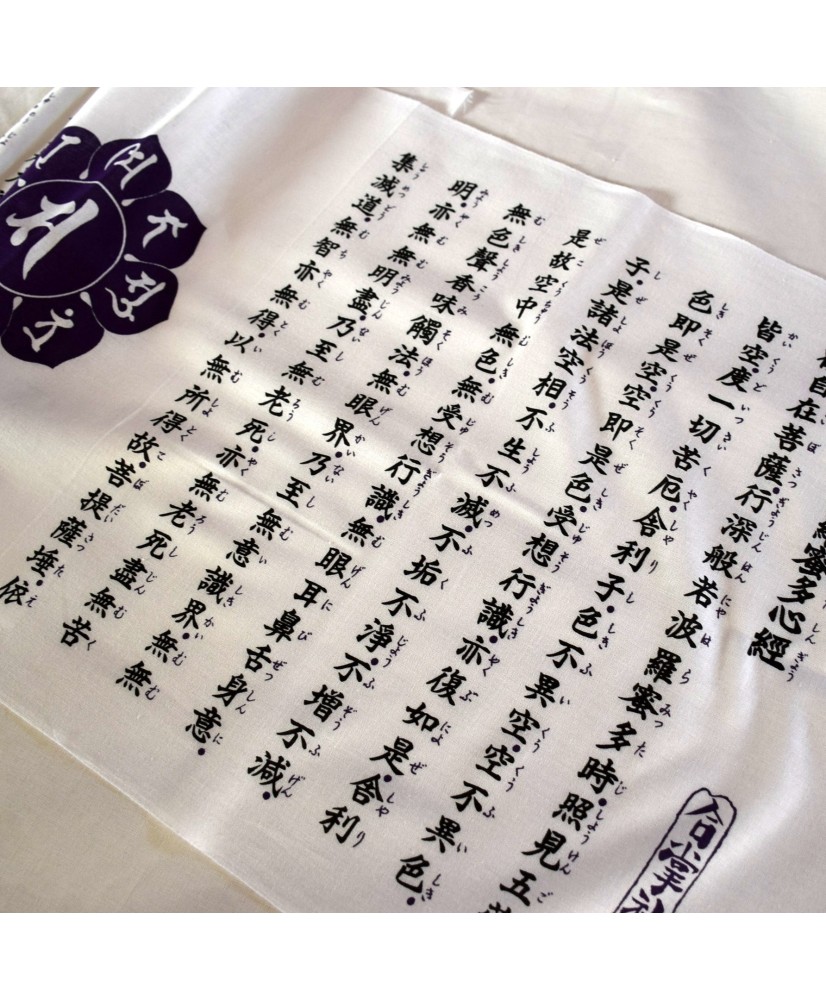 羅蜜多心經
自在菩薩・行深般若波羅蜜多時・照見五
皆空・度一切苦厄・舍利子・色不異空・空不異色・
色即是空空即是色・受想行識・亦復如是・舍利
子・是諸法空相・不生不滅・不垢不淨・不增不減・
是故空中・無色・無受想行識・無眼耳鼻舌身意・
無色聲香味觸法・無眼界・乃至無意識界・無無
明・亦無無明盡・乃至無老死・亦無老死盡・無苦
集滅道・無智亦無得・以無所得故・菩提薩埵・依
合掌